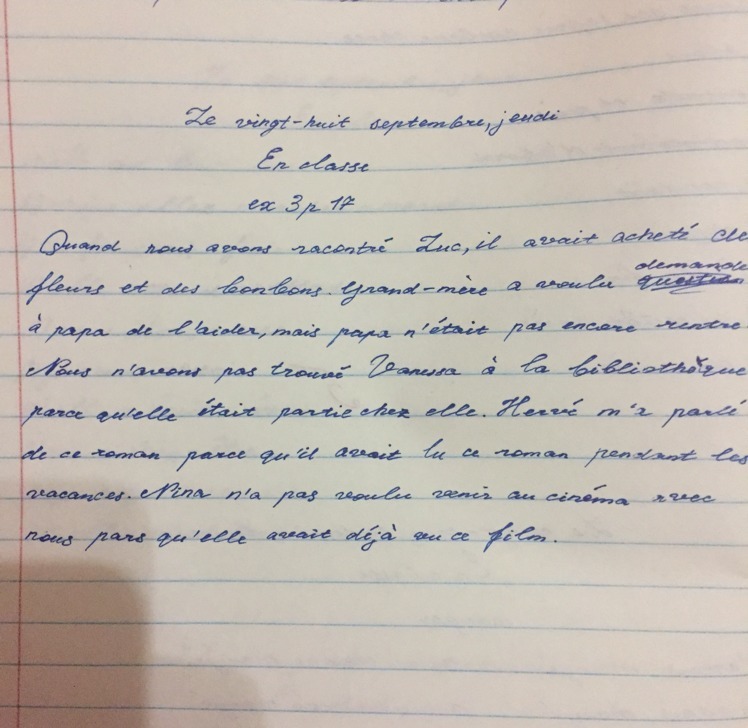 Le vingt-huit septembre, jeudi
En classe
ex 3 p 17
Quand nous avons racontré Luc, il avait acheté de
fleurs et des bonbons. Grand-mère a voulu demande
à papa de l'aider, mais papa n'était pas encore rentré
Nous n'avons pas trouvé Vanessa à la bibliothèque
parce qu'elle était partie chez elle. Hervé m'a parlé
de ce roman parce qu'il avait lu ce roman pendant les
vacances. Nina n'a pas voulu venir au cinéma avec
nous pars qu'elle avait déjà vu ce film.